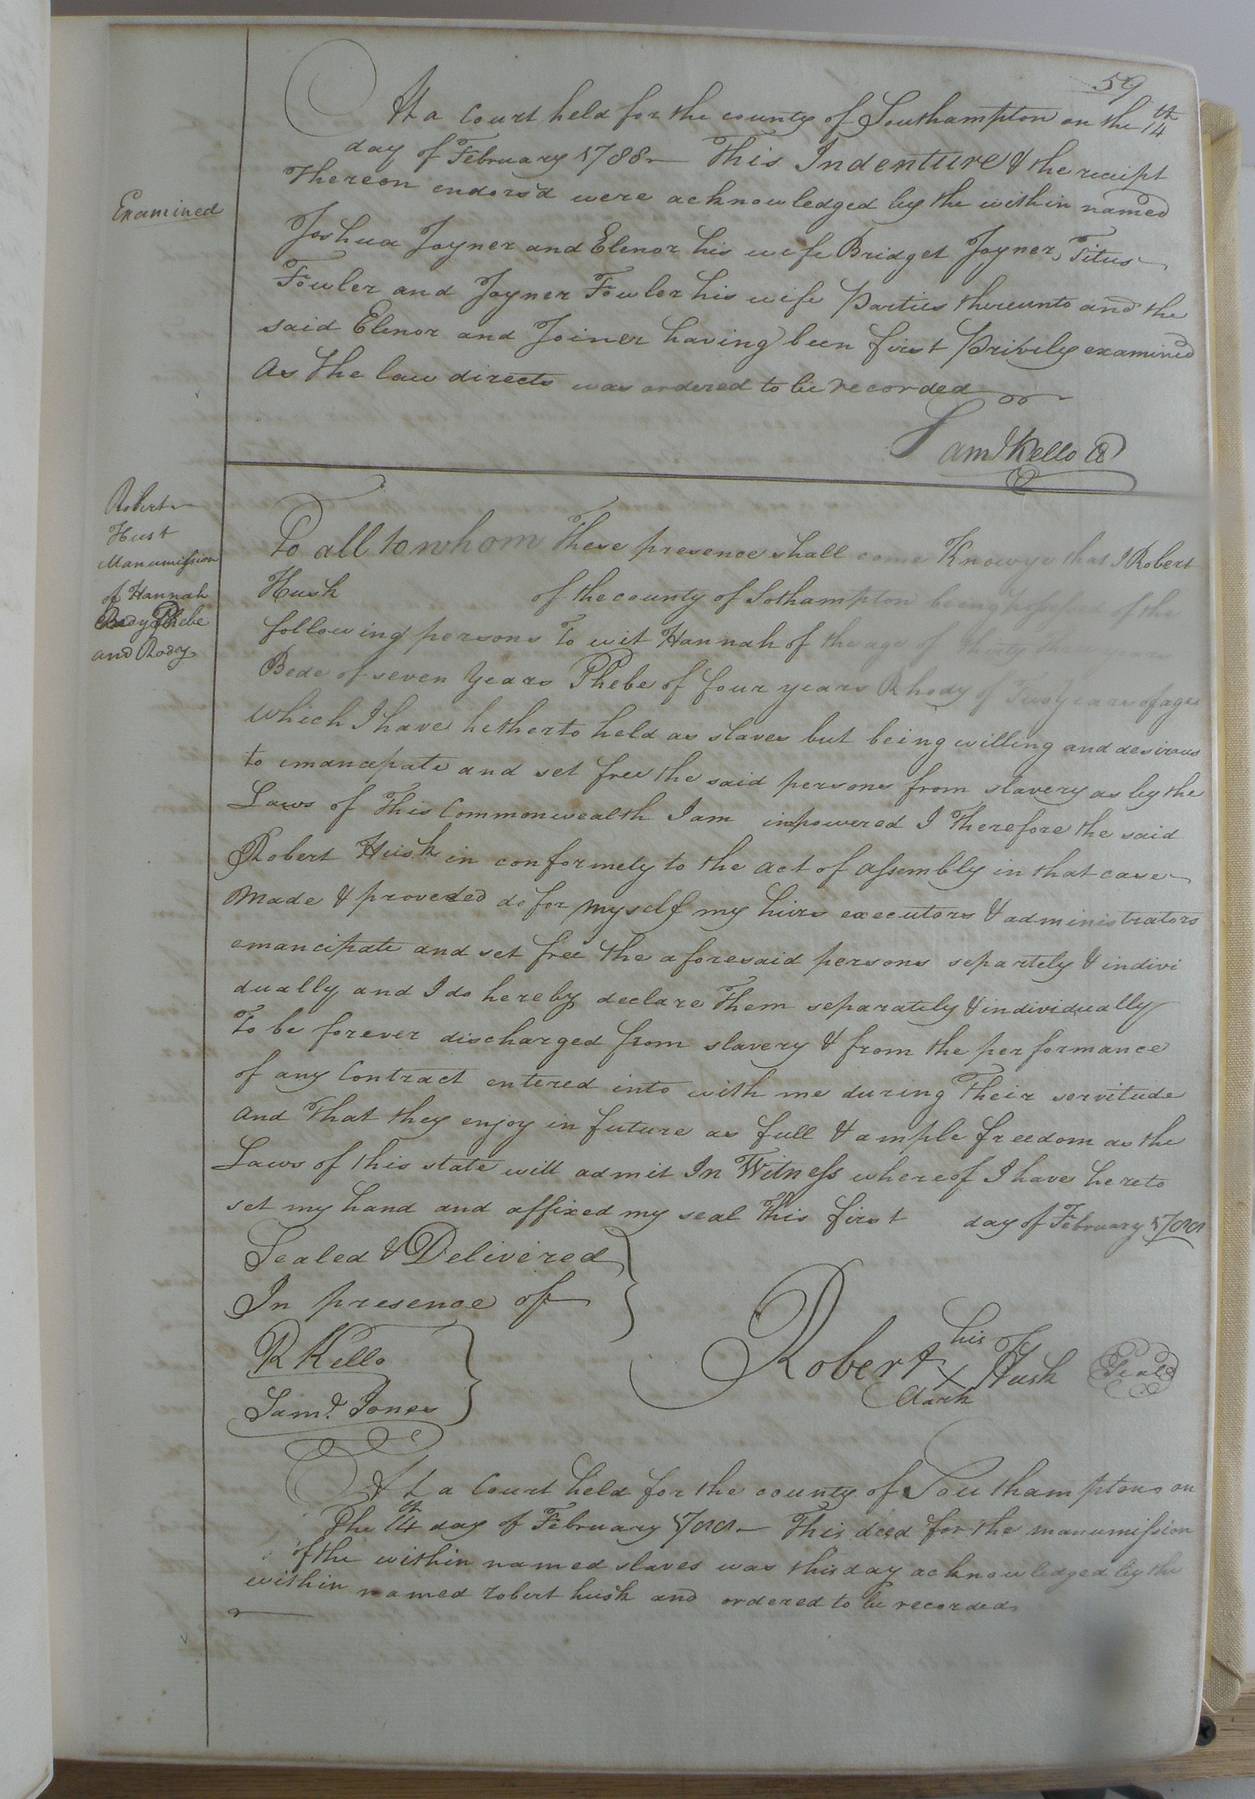 59
At a Court held for the county of Southampton on the 14th
day of February 1788 This Indenture & the receipt
Thereon endorsd were acknowledged by the within named
Examined
Joshua Joyner and Elenor his wife Bridget Joyner, Titus
Fowler and Joyner Fowler his wife parties thereunto and the
said Elenor and Joiner having been first privily examined
As the law directs was ordered to be recorded
Saml Kello Cl
Robert
Hust
Manumission
of Hannah
Phebe
and Rody
To all to whom These presence shall come Know ye that I Robert
Husk of the county of Sothampton being of the
following persons To wit Hannah of the age of thirty years
Bede of seven Years Phebe of four years Rhody of Two years of age
which I have hetherto held as slaves but being willing and desirous
to emancepate and set free the said persons from slavery as by the
Laws of This Commonwealth I am impowered I Therefore the said
Robert Husk in conformety to the act of assembly in that case
Made & proveded do for myself my hiirs executors & administrators
emancipate and set free the aforesaid persons separtely & indivi
dually and I do hereby declare Them separately & individually
To be forever discharged from slavery & from the performance
of any Contract entered into with me during Their servitude
And That they enjoy in future as full & ample freedom as the
Laws of this state will admit In Witness whereof I have hereto
set my hand and affixed my seal This first day of February 1788
Sealed & Delivered
In presence of
R Kello
Saml. Jones
Robert his X Mark Husk Seal
At a Court held for the county of Southampton on
The 14th day of February 1788 This deed for the manumission
of the within named slaves was this day acknowledged by the
within named robert husk and ordered to be recorded